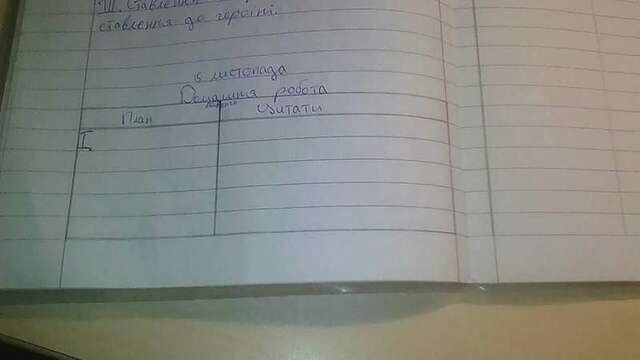 III. Ставлення
ставлення до героїні.
15 листопада
Домашня робота
План
Цитати
I